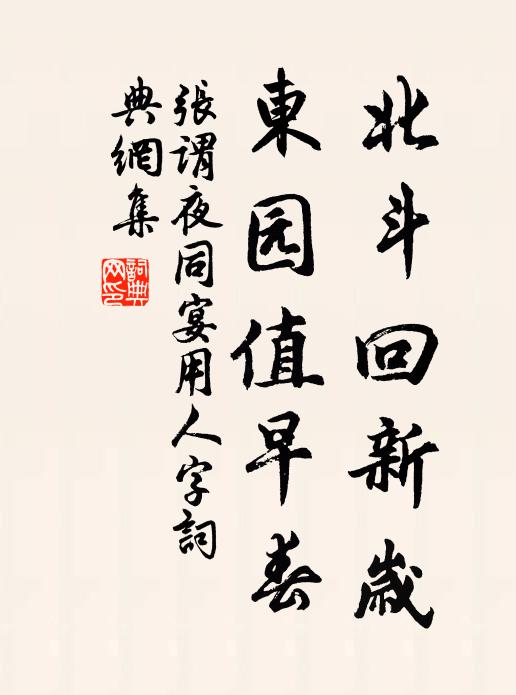 北斗回新歲
東园值早春
張谓夜同宴用人字詞
典網集
詞典
网印